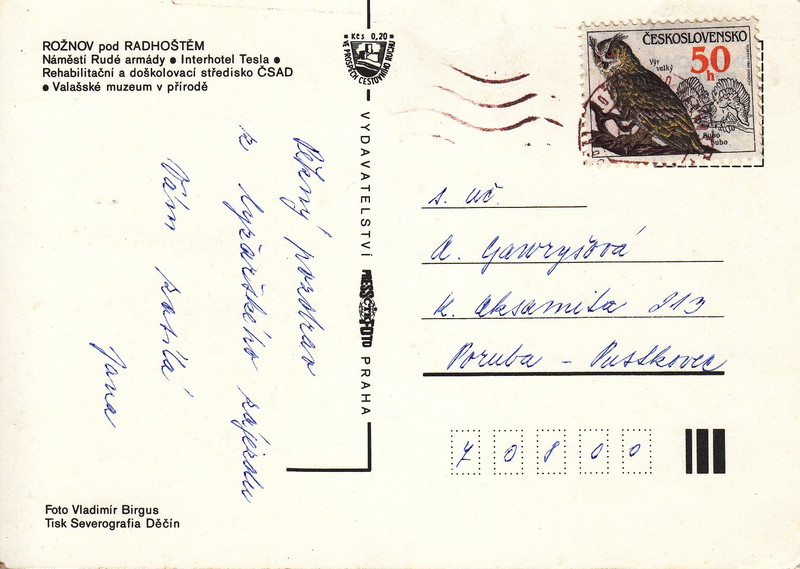 ROŽNOV pod RADHOŠTĚM
Náměstí Rudé armády ● Interhotel Tesla ●
Rehabilitační a doškolovací středisko ČSAD
● Valašské muzeum v přírodě
Pěkný pozdrav
z lyžařského zájezdu
Vám posílá
Jana
Foto Vladimír Birgus
Tisk Severografia Děčín
Kčs 0,20
VE PROSPĚCH CESTOVNÍHO RUCHU
VYDAVATELSTVÍ PRESSFOTO PRAHA
ČESKOSLOVENSKO
50 h
Výr
velký
Bubo
bubo
s. uč.
A. Gawryšová
K. Aksamita 213
Poruba - Pustkovec
70800